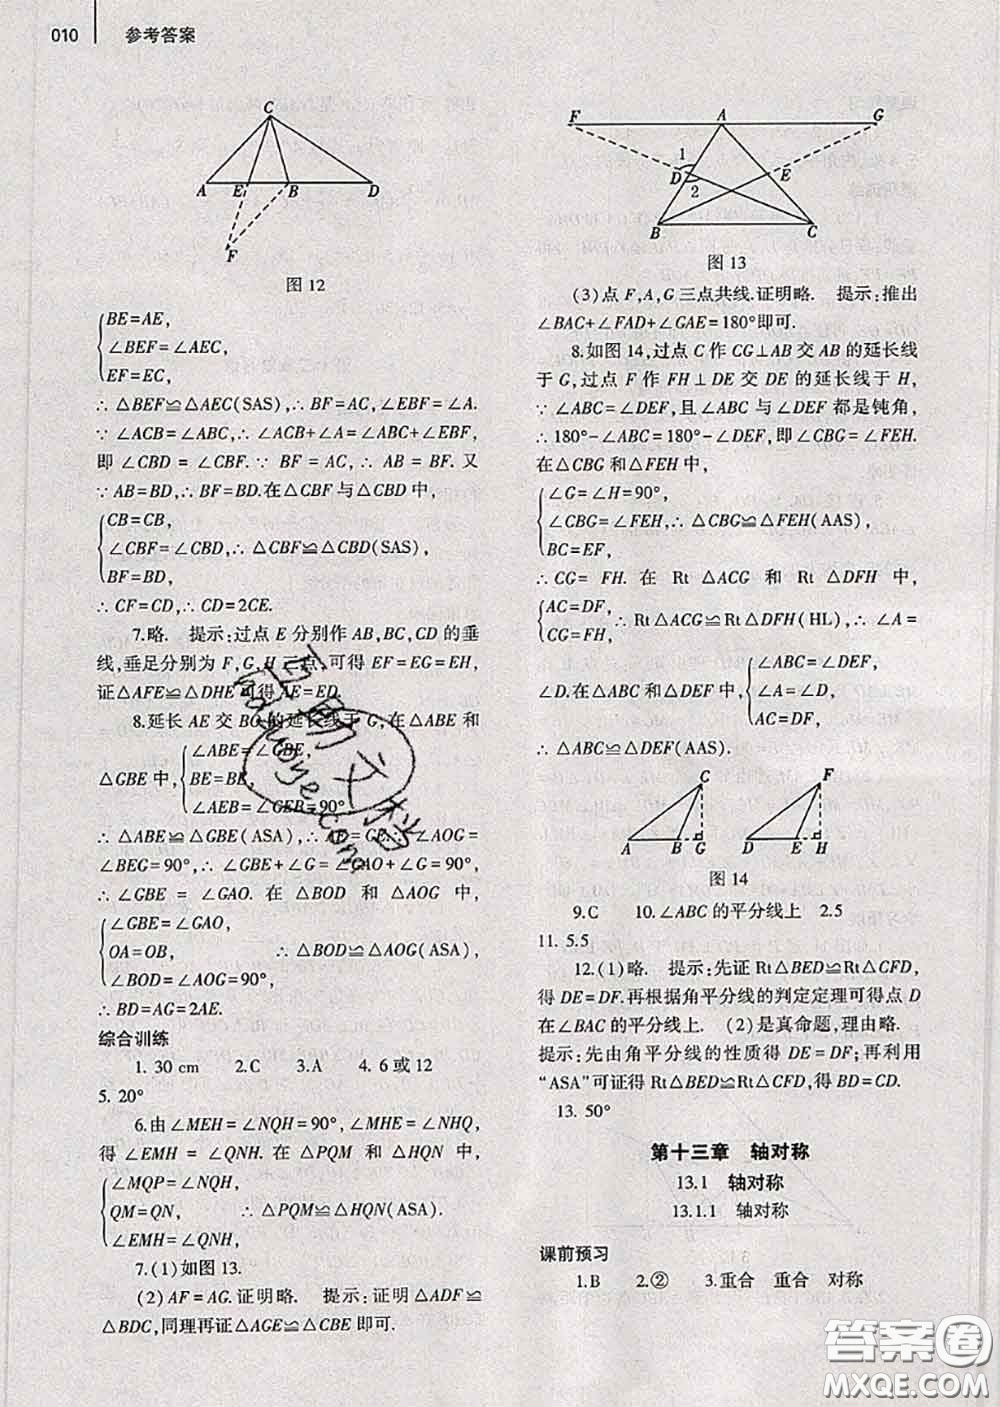 010 参考答案
C
A E B D
F
图 12
BE=AE,
∠BEF=∠AEC,
EF=EC,
∴ △BEF≌△AEC(SAS),∴ BF=AC,∠EBF=∠A.
∵ ∠ACB=∠ABC,∴ ∠ACB+∠A=∠ABC+∠EBF,
即 ∠CBD = ∠CBF. ∵ BF = AC, ∴ AB = BF. 又
∵ AB=BD,∴ BF=BD.在△CBF与△CBD中,
CB=CB,
∠CBF=∠CBD,∴ △CBF≌△CBD(SAS),
BF=BD,
∴ CF=CD,∴ CD=2CE.
7.略. 提示:过点 E 分别作 AB,BC,CD 的垂
线,垂足分别为 F,G,H 三点,可得 EF=EG=EH,
证△AFE≌△DHE 可得AE=ED.
8.延长 AE 交 BC 的延长线于 G,在△ABE 和
∠ABE=∠GBE,
△GBE 中, BE=BE,
∠AEB=∠GEB=90°,
∴ △ABE≌△GBE(ASA),∴ AE=GE.∴ ∠AOG =
∠BEG=90°,∴ ∠GBE+∠G=∠GAO+∠G=90°,
∴ ∠GBE = ∠GAO. 在 △BOD 和 △AOG 中,
∠GBE=∠GAO,
OA=OB, ∴ △BOD≌△AOG(ASA),
∠BOD=∠AOG=90°,
∴ BD=AG=2AE.
综合训练
1. 30 cm 2.C 3.A 4. 6 或 12
5. 20°
6.由∠MEH=∠NQH=90°,∠MHE=∠NHQ,
得 ∠EMH = ∠QNH. 在 △PQM 和 △HQN 中,
∠MQP=∠NQH,
QM=QN, ∴ △PQM≌△HQN(ASA).
∠EMH=∠QNH,
7.(1)如图 13.
(2)AF=AG.证明略. 提示:证明△ADF≌
△BDC,同理再证△AGE≌△CBE 即可.
F A G
1
D E
2
B C
图 13
(3)点 F,A,G 三点共线.证明略. 提示:推出
∠BAC+∠FAD+∠GAE=180°即可.
8.如图 14,过点 C 作 CG⊥AB 交 AB 的延长线
于 G,过点 F 作 FH⊥DE 交 DE 的延长线于 H,
∵ ∠ABC=∠DEF,且∠ABC 与∠DEF 都是钝角,
∴ 180°-∠ABC=180°-∠DEF,即∠CBG=∠FEH.
在△CBG 和△FEH 中,
∠G=∠H=90°,
∠CBG=∠FEH,∴ △CBG≌△FEH(AAS),
BC=EF,
∴ CG= FH. 在 Rt △ACG 和 Rt △DFH 中,
AC=DF,
CG=FH, ∴ Rt△ACG≌Rt△DFH(HL),∴ ∠A=
∠ABC=∠DEF,
∠D.在△ABC 和△DEF 中, ∠A=∠D,
AC=DF,
∴ △ABC≌△DEF(AAS).
C F
A B G D E H
图 14
9.C 10.∠ABC 的平分线上 2.5
11. 5.5
12.(1)略. 提示:先证 Rt△BED≌Rt△CFD,
得 DE=DF.再根据角平分线的判定定理可得点 D
在∠BAC 的平分线上. (2)是真命题,理由略.
提示:先由角平分线的性质得 DE=DF;再利用
“ASA”可证得 Rt△BED≌Rt△CFD,得 BD=CD.
13. 50°
第十三章 轴对称
13.1 轴对称
13.1.1 轴对称
课前预习
1.B 2.② 3.重合 重合 对称
答案圈
MXQE.COM